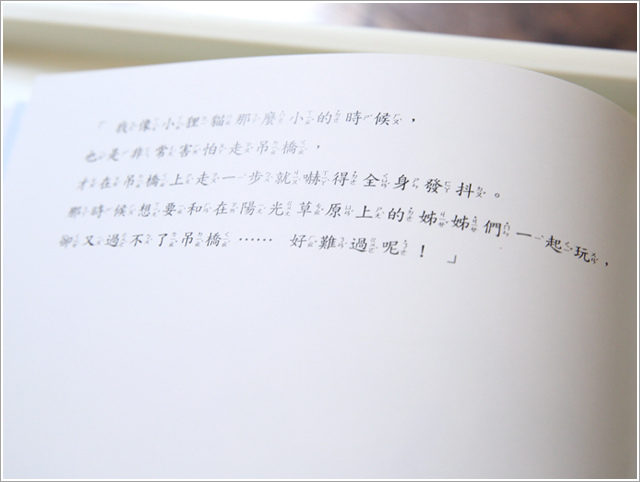 「我像小狸貓那麼小的時候，
也是非常害怕走吊橋，
才在吊橋上走一步就嚇得全身發抖。
那時候想要和在陽光草原上的姊姊們一起玩，
卻又過不了吊橋…… 好難過呢！」